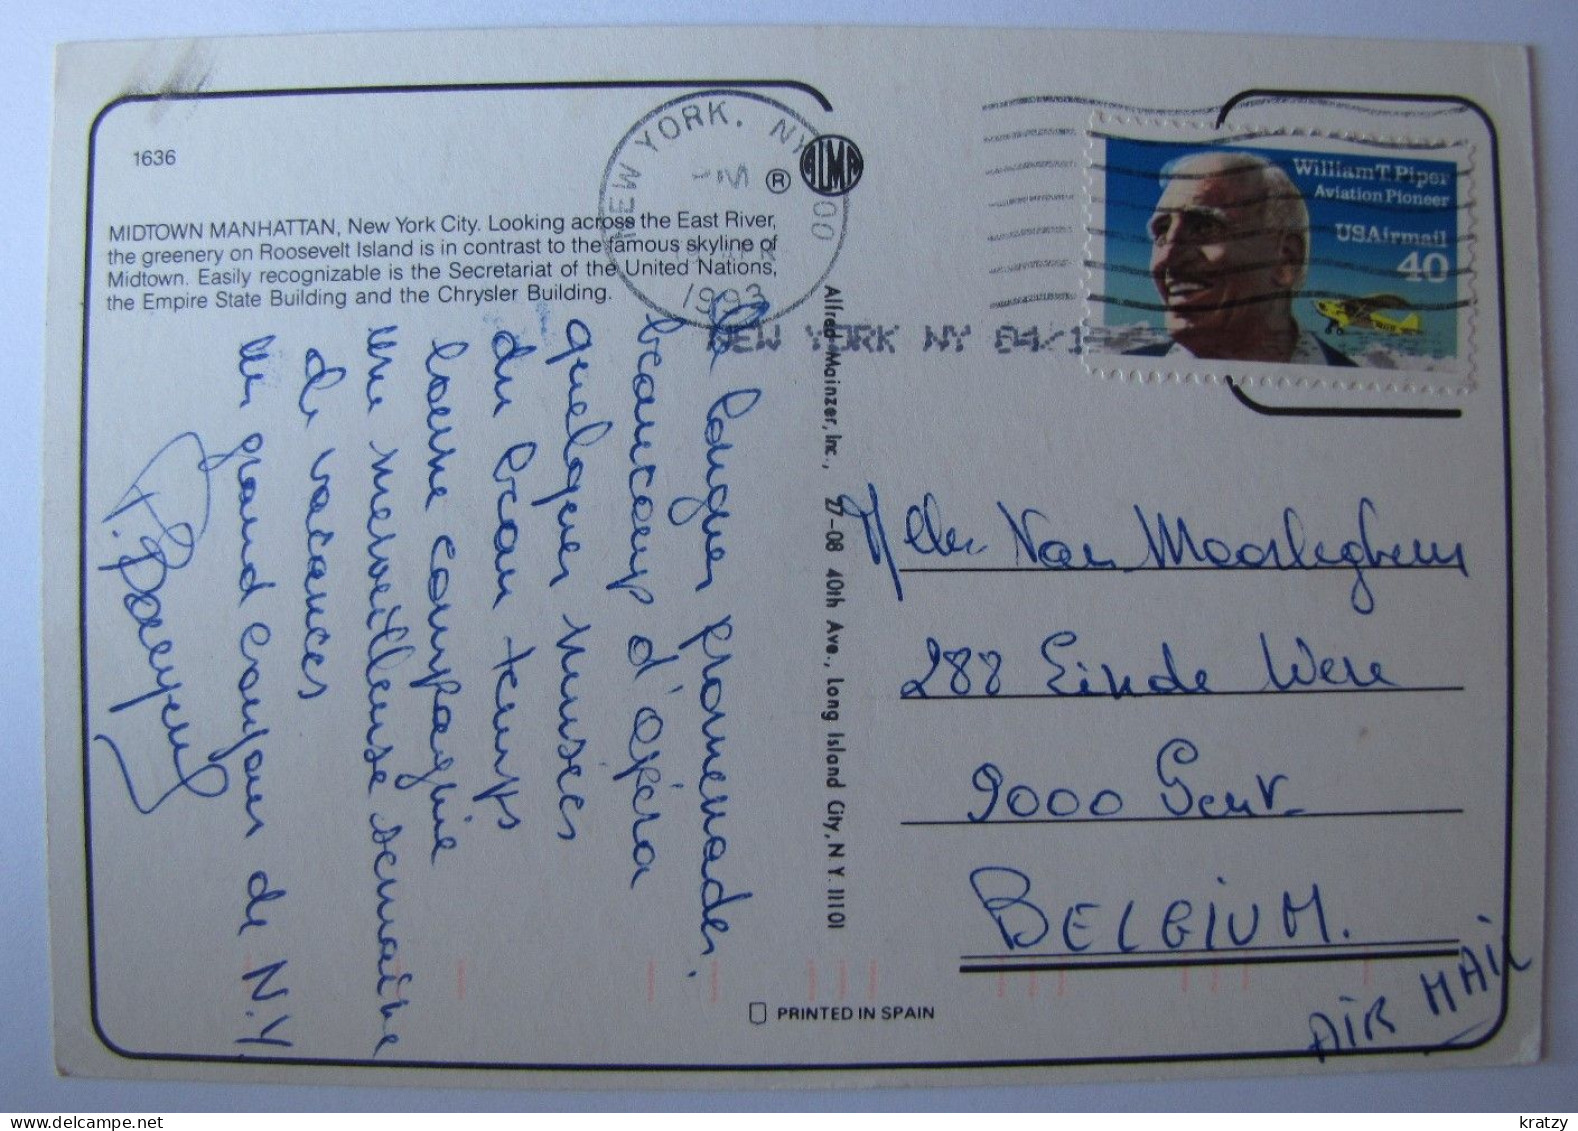 1636
MIDTOWN MANHATTAN, New York City. Looking across the East River,
the greenery on Roosevelt Island is in contrast to the famous skyline of
Midtown. Easily recognizable is the Secretariat of the United Nations,
the Empire State Building and the Chrysler Building.
NEW YORK, NY
1993
ALMA
®
NEW YORK NY 04/1
William T. Piper
Aviation Pioneer
USAirmail
40
De longues promenades.
beaucoup d'opéra
quelques musées
du beau temps
bonne compagnie
une merveilleuse semaine
de vacances
un grand bonjour de N.Y
Alfred Mainzer, Inc., 27-08 40th Ave., Long Island City, N.Y. 11101
Melle Van Moorleghem
288 Einde Were
9000 Gent
BELGIUM.
AIR MAIL
PRINTED IN SPAIN
kratzy
www.delcampe.net